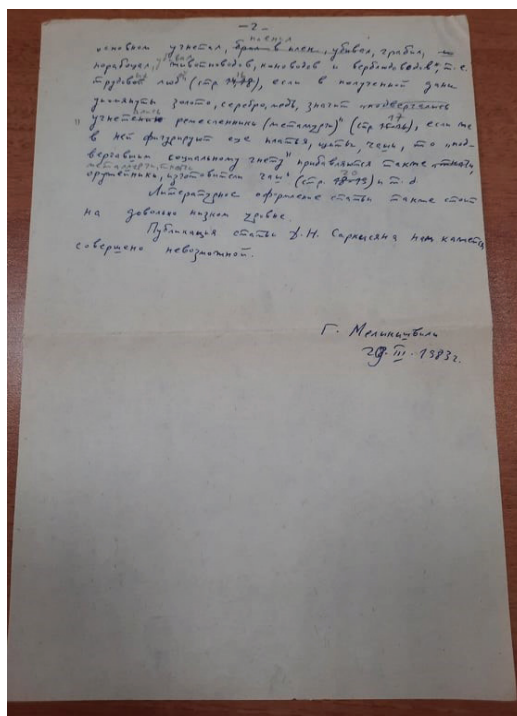 -2-
пленял
основном угнетал, брал в плен, убивал, грабил,
порабощал, угонял животноводов, коневодов и верблюдоводов", т.е.
трудовой люд" (стр. ), если в полученной дани
упомянуты золото, серебро, медь, значит "подвергались
угнетению ремесленники (металлурги)" (стр. 17), если же
в ней фигурируют еще платья, щиты, чаши, то "под-
вергавшимся социальному гнету" прибавляются также "ткачи,
металлурги, ткачи
оружейники, изготовители чаш" (стр. ) и т.д.
Литературное оформление статьи также стоит
на довольно низком уровне.
Публикация статьи Д.Н. Саркисяна нам кажется
совершено невозможной.
Г. Меликишвили
29.III.1983г.